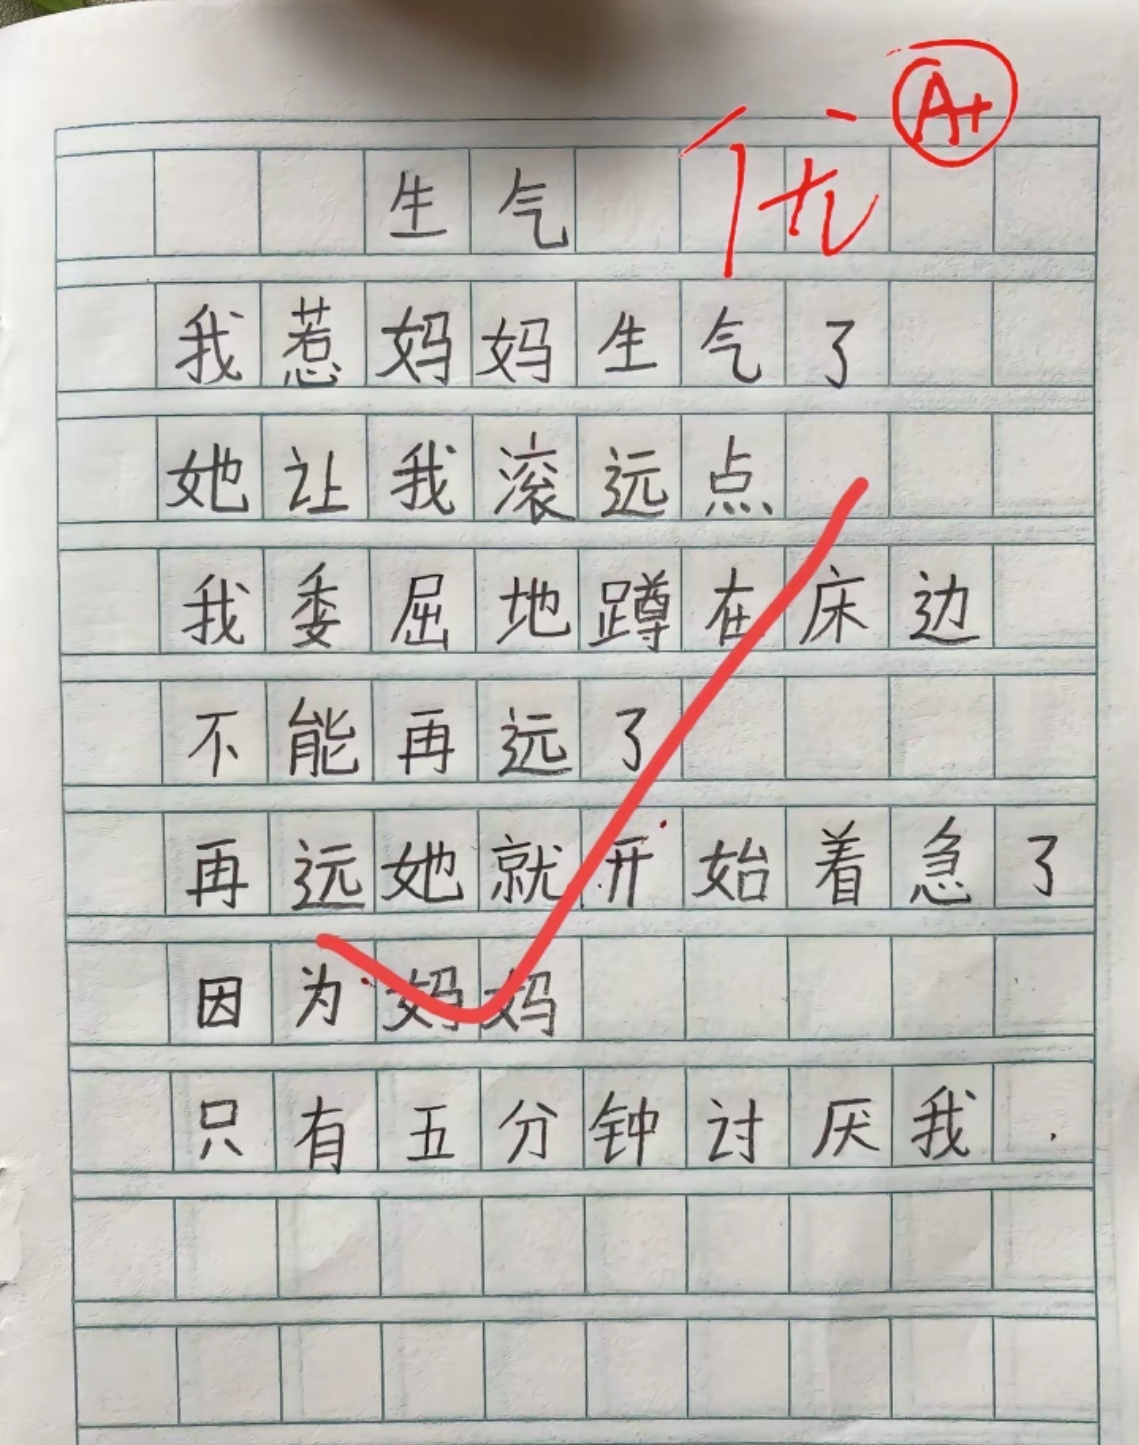 A+
生气 优
我惹妈妈生气了
她让我滚远点
我委屈地蹲在床边
不能再远了
再远她就开始着急了
因为妈妈
只有五分钟讨厌我.